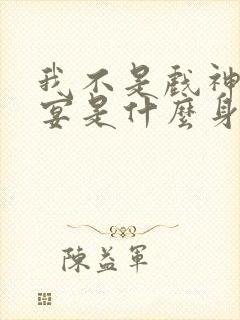 我不是戲神
宴是什麼身
陳益軍